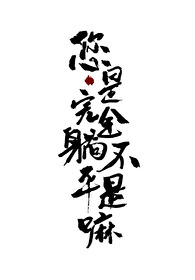 您是完全躺平不是嘛